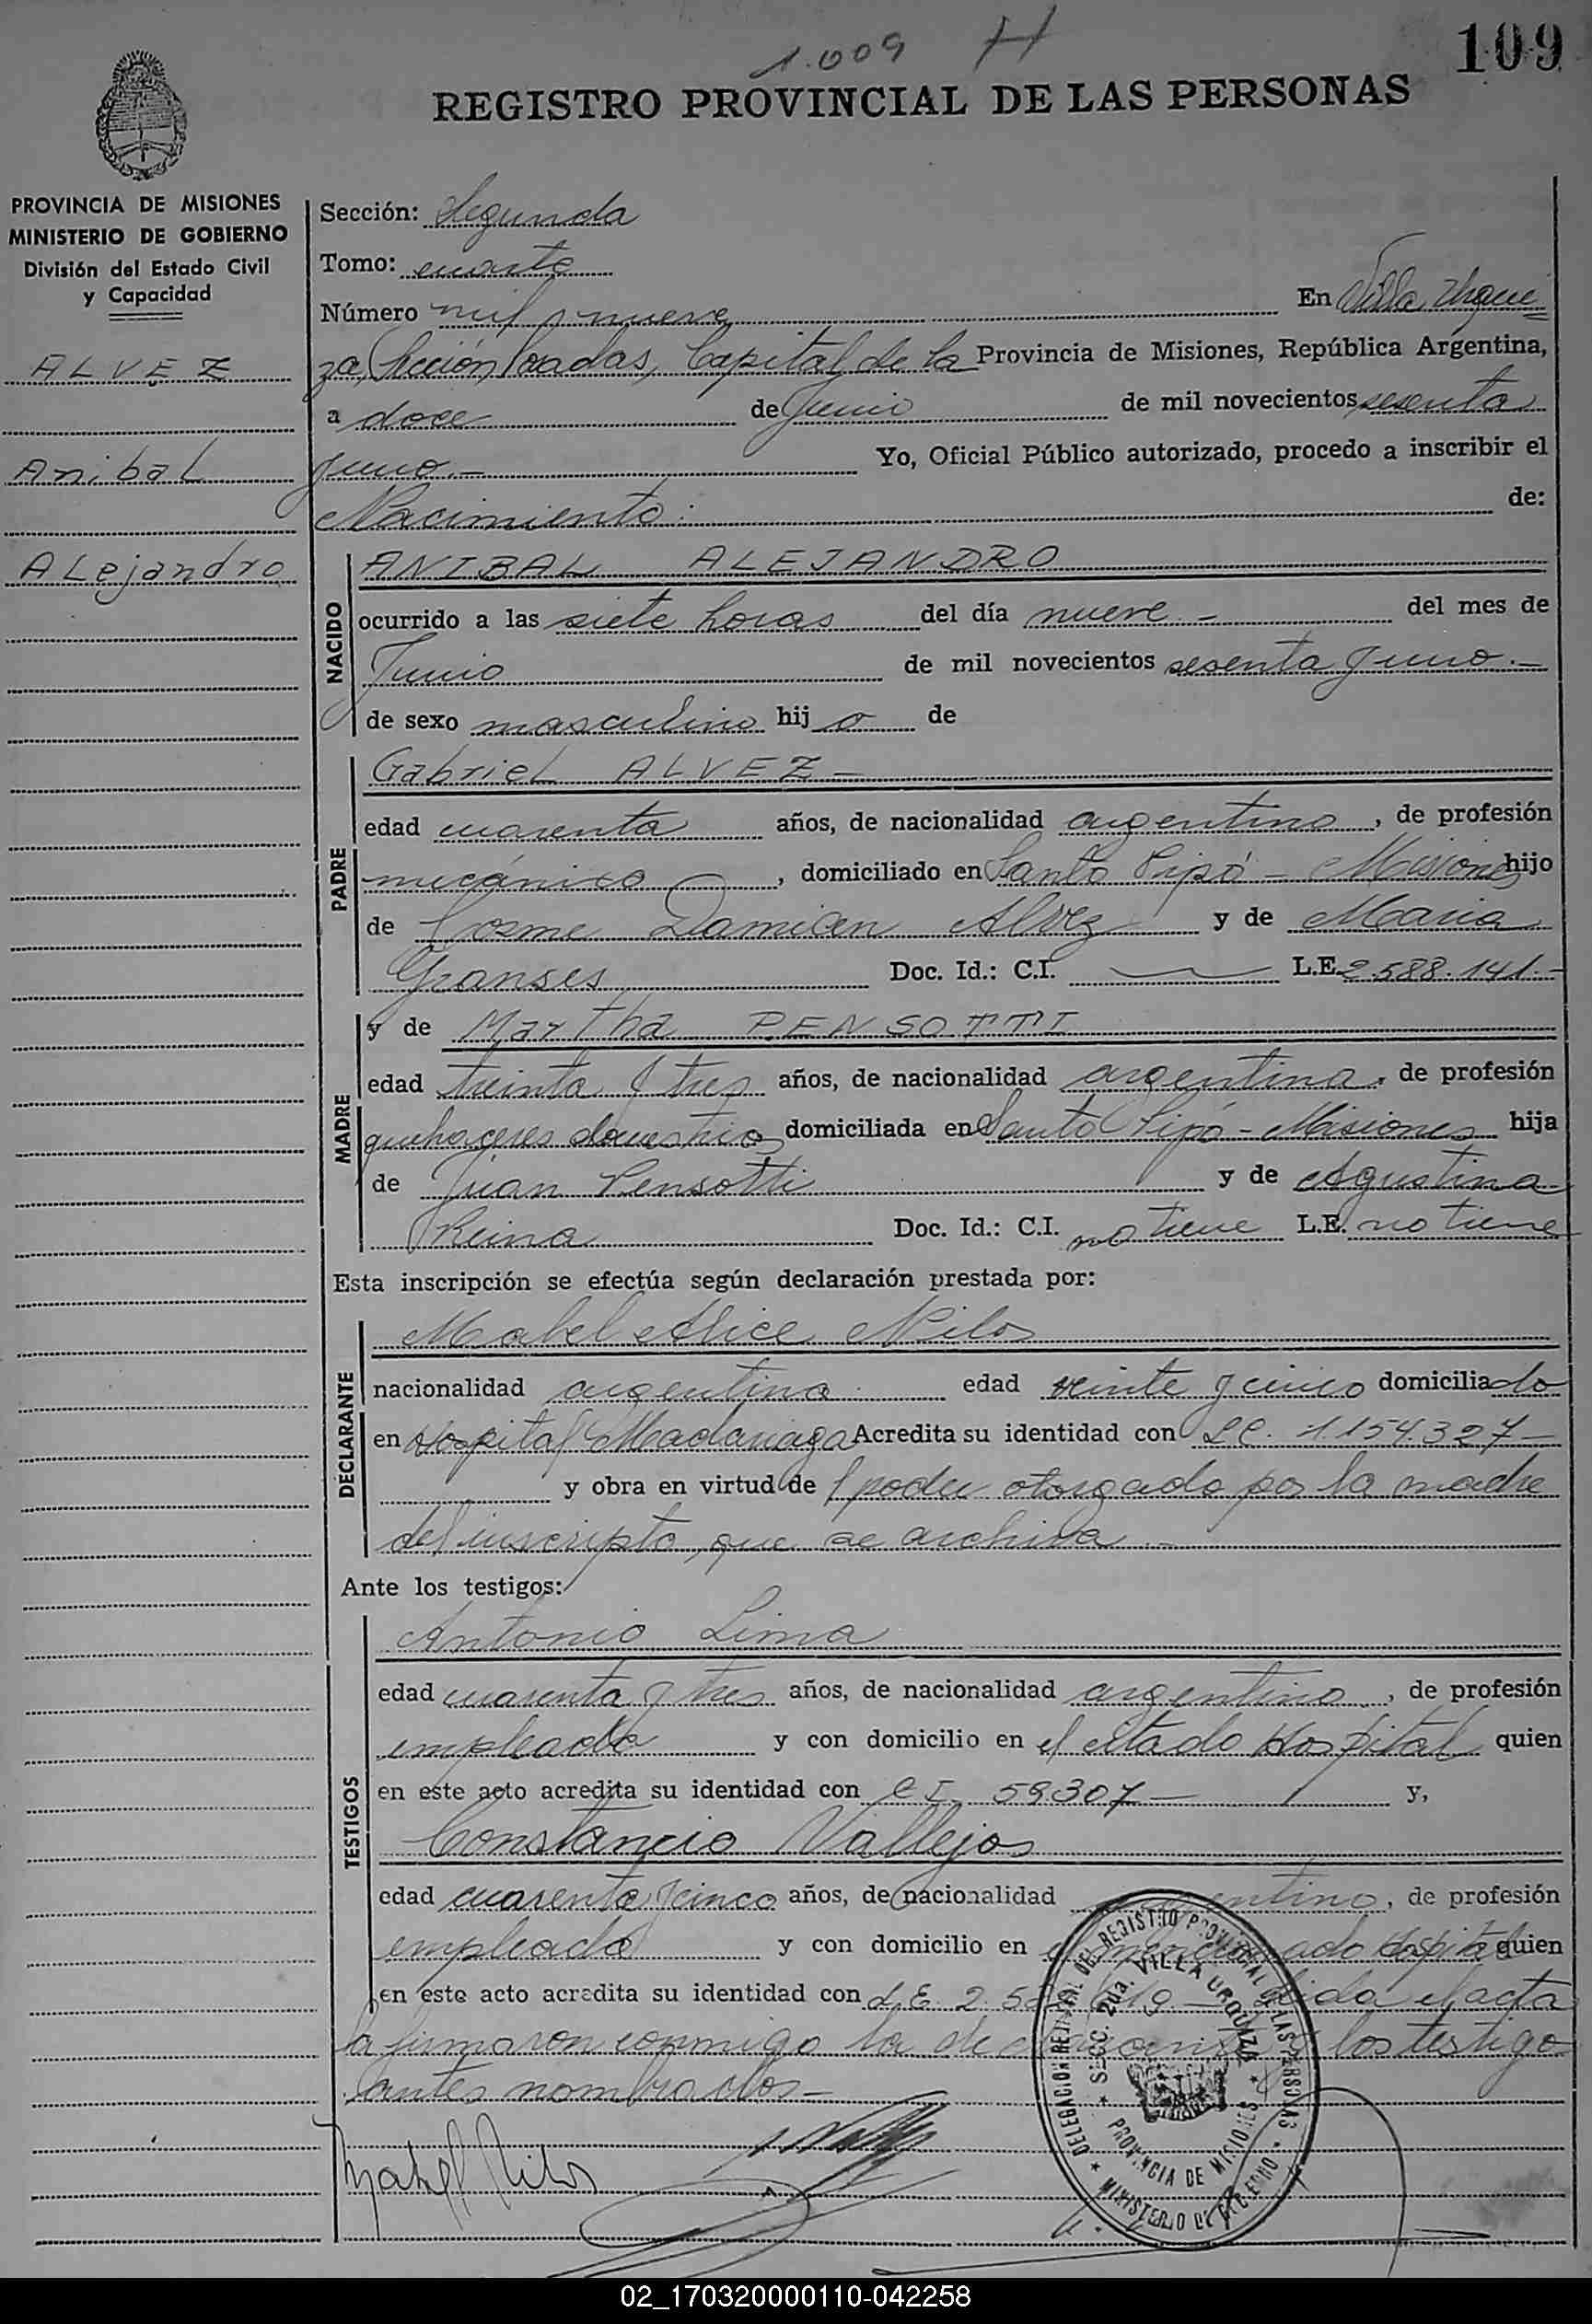 1.009 H
109
REGISTRO PROVINCIAL DE LAS PERSONAS
PROVINCIA DE MISIONES
MINISTERIO DE GOBIERNO
División del Estado Civil
y Capacidad
ALVEZ
Anibal
ALejandro
Sección: Segunda
Tomo: cuarto
Número mil nueve En Villa Urqui
za, Sección Posadas, Capital de la Provincia de Misiones, República Argentina,
a doce de Junio de mil novecientos sesenta
y uno.- Yo, Oficial Público autorizado, procedo a inscribir el
Nacimiento de:
NACIDO
ANIBAL ALEJANDRO
ocurrido a las siete horas del día nueve - del mes de
Junio de mil novecientos sesenta y uno.-
de sexo masculino hijo de
PADRE
Gabriel ALVEZ -
edad cuarenta años, de nacionalidad argentino, de profesión
mecánico, domiciliado en Santo Pipó - Misiones hijo
de Cosme Damian Alvez y de Maria
Doc. Id.: C.I. L.E. 2.588.141.-
MADRE
y de Martha PENSOTTI
edad treinta y tres años, de nacionalidad argentina, de profesión
quehaceres domesticos domiciliada en Santo Pipó - Misiones hija
de Juan Pensotti y de Agustina
Reina Doc. Id.: C.I. no tiene L.E. no tiene
Esta inscripción se efectúa según declaración prestada por:
DECLARANTE
Mabel Alice Nilos
nacionalidad argentina edad veinte y cinco domiciliado
en Hospital Madariaga Acredita su identidad con LC. 1.154.327 -
y obra en virtud de poder otorgado por la madre
del inscripto, que se archiva.-
Ante los testigos:
TESTIGOS
Antonio Lima
edad cuarenta y tres años, de nacionalidad argentino, de profesión
empleado y con domicilio en el citado Hospital quien
en este acto acredita su identidad con CI 59.307 - y,
Constancio Vallejos
edad cuarenta y cinco años, de nacionalidad argentino, de profesión
empleado y con domicilio en el mencionado Hospital quien
en este acto acredita su identidad con L.E. 2.5 Leida el acta
la firmaron conmigo la declarante y los testigo
antes nombrados -
Mabel Nilos
DELEGACION REGIONAL DEL REGISTRO PROVINCIAL DE LAS PERSONAS
SECC. 2da. VILLA URQUIZA
PROVINCIA DE MISIONES
MINISTERIO DE GOBIERNO
02_170320000110-042258